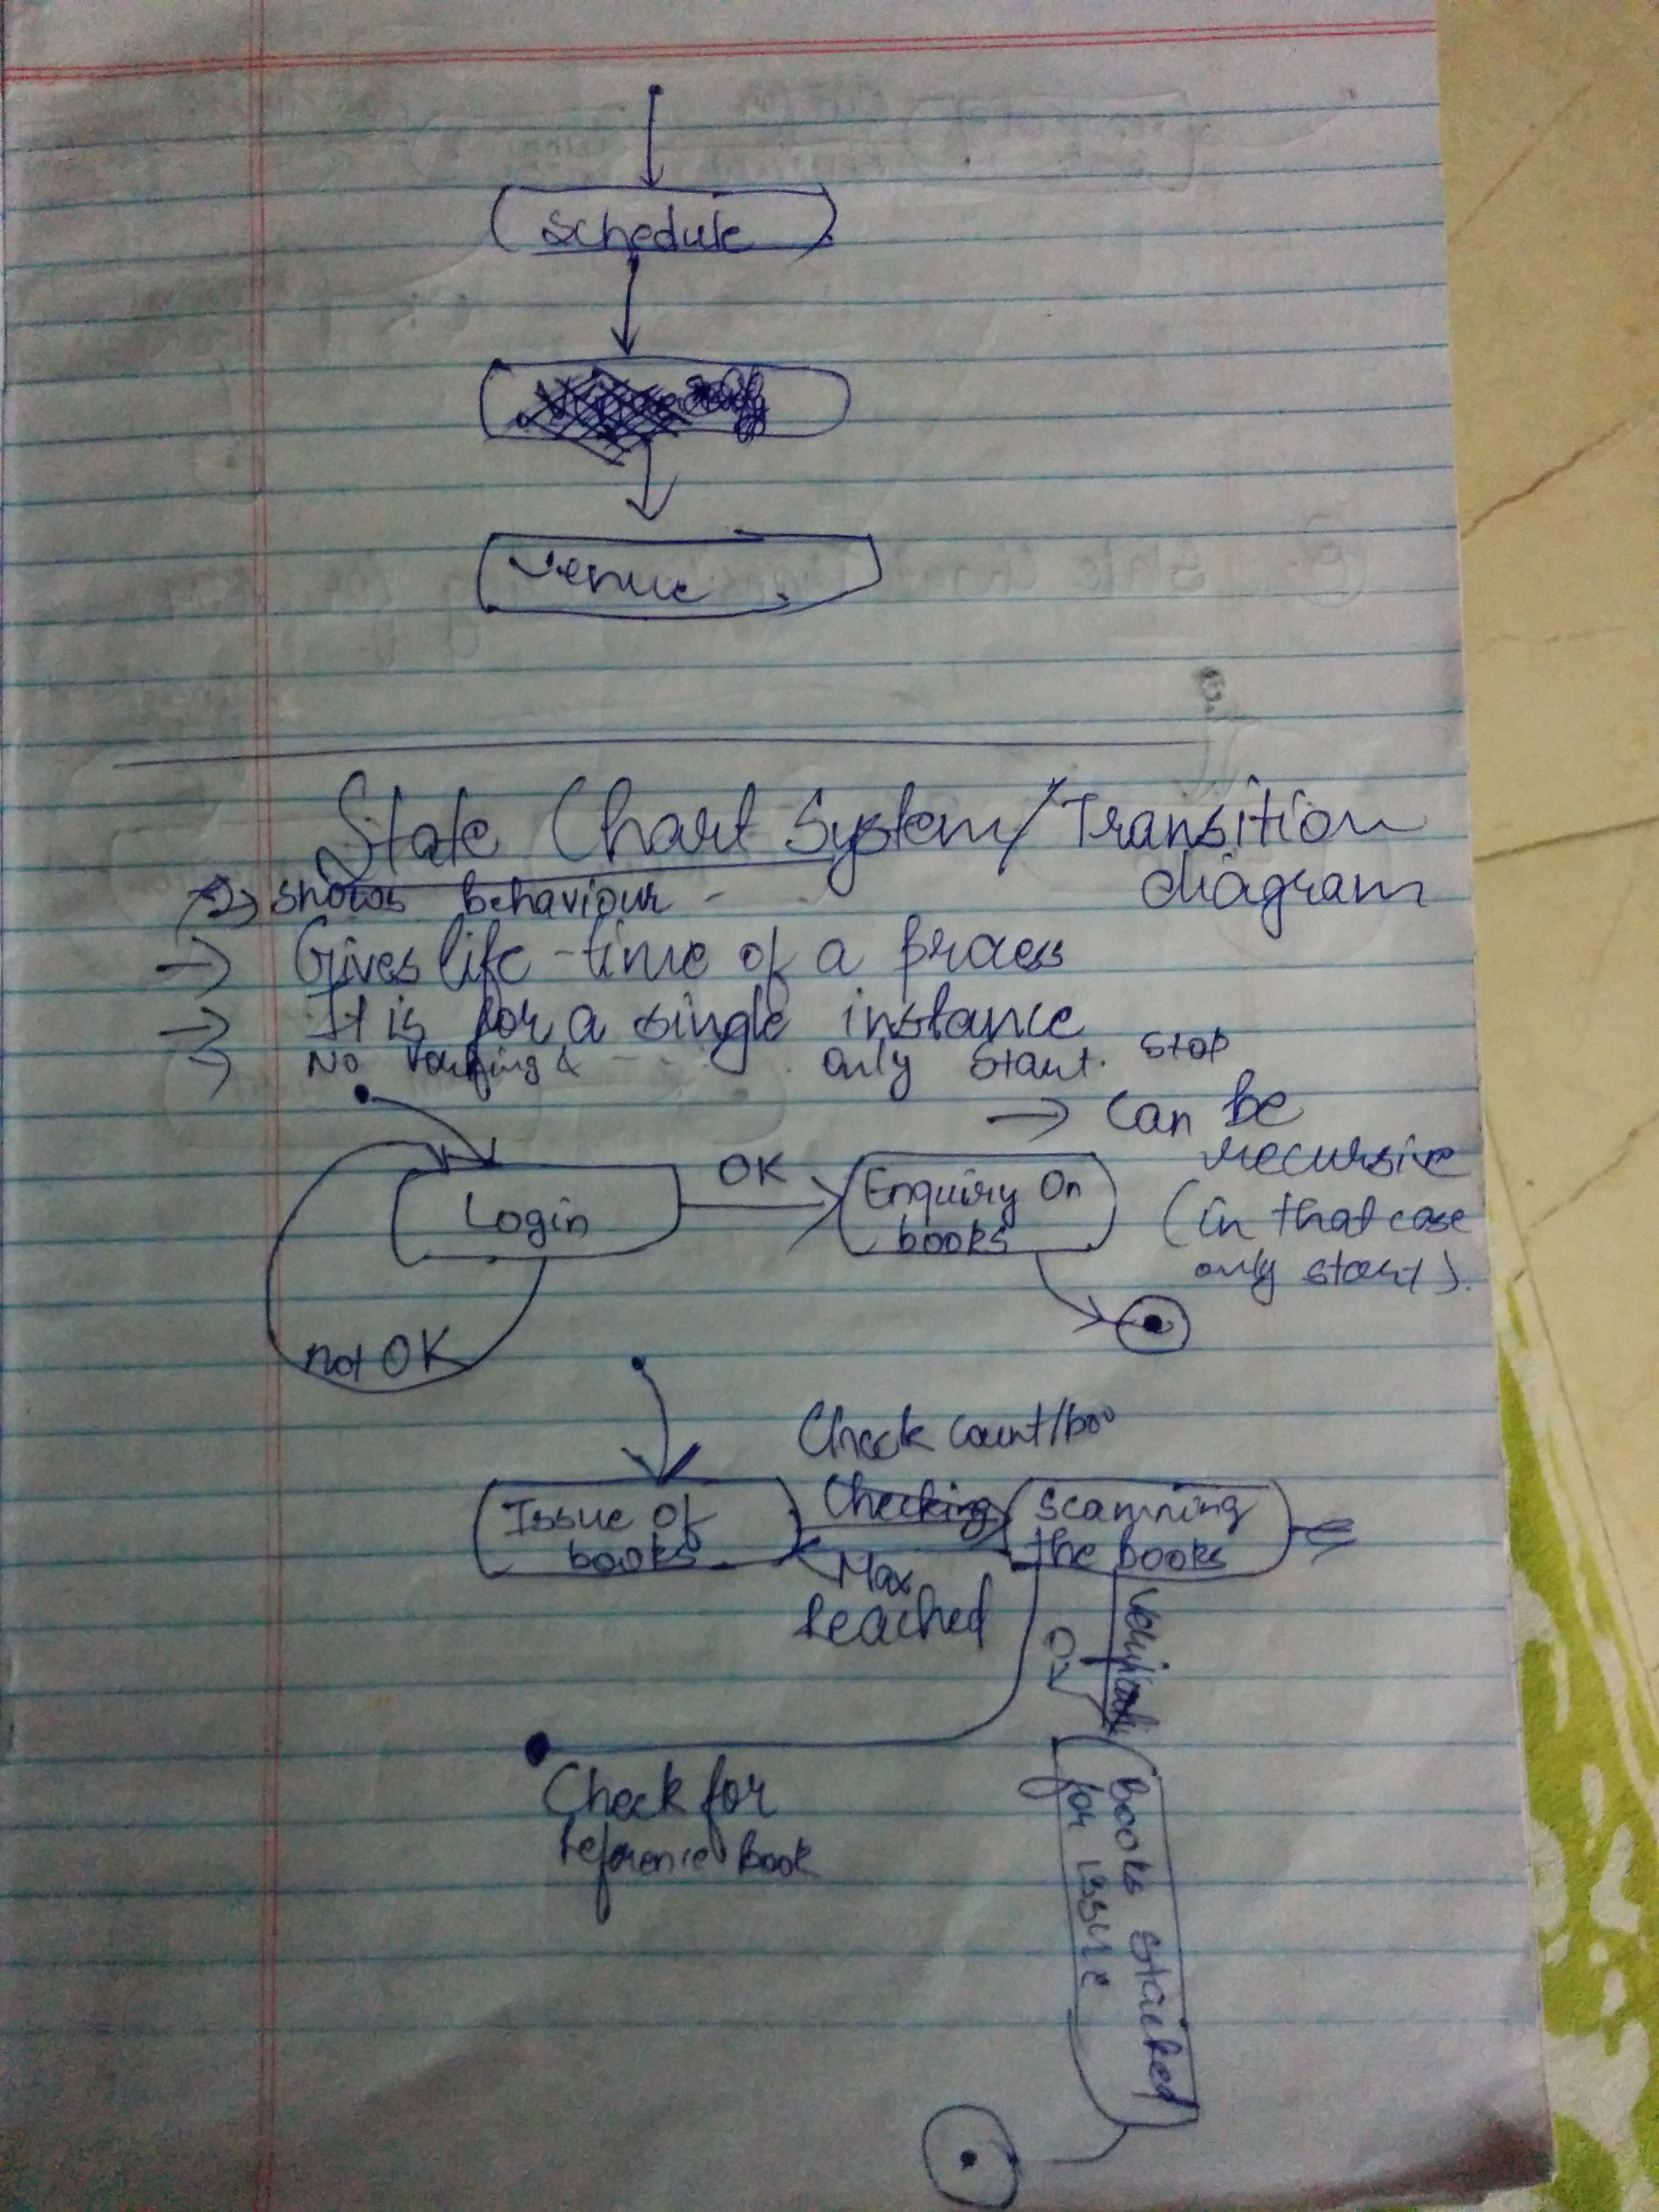 Schedule
Venue
State Chart System/Transition
diagram
shows behaviour -
→ Gives life-time of a process
→ It is for a single instance
→ No &
only start. stop
→ Can be
recursive
(in that case
only start).
Login
OK
Enquiry On
books
not OK
Check count/boo
Issue of
books
Checking
Scanning
the books
Max
reached
Check for
reference book
books stacked
for issue